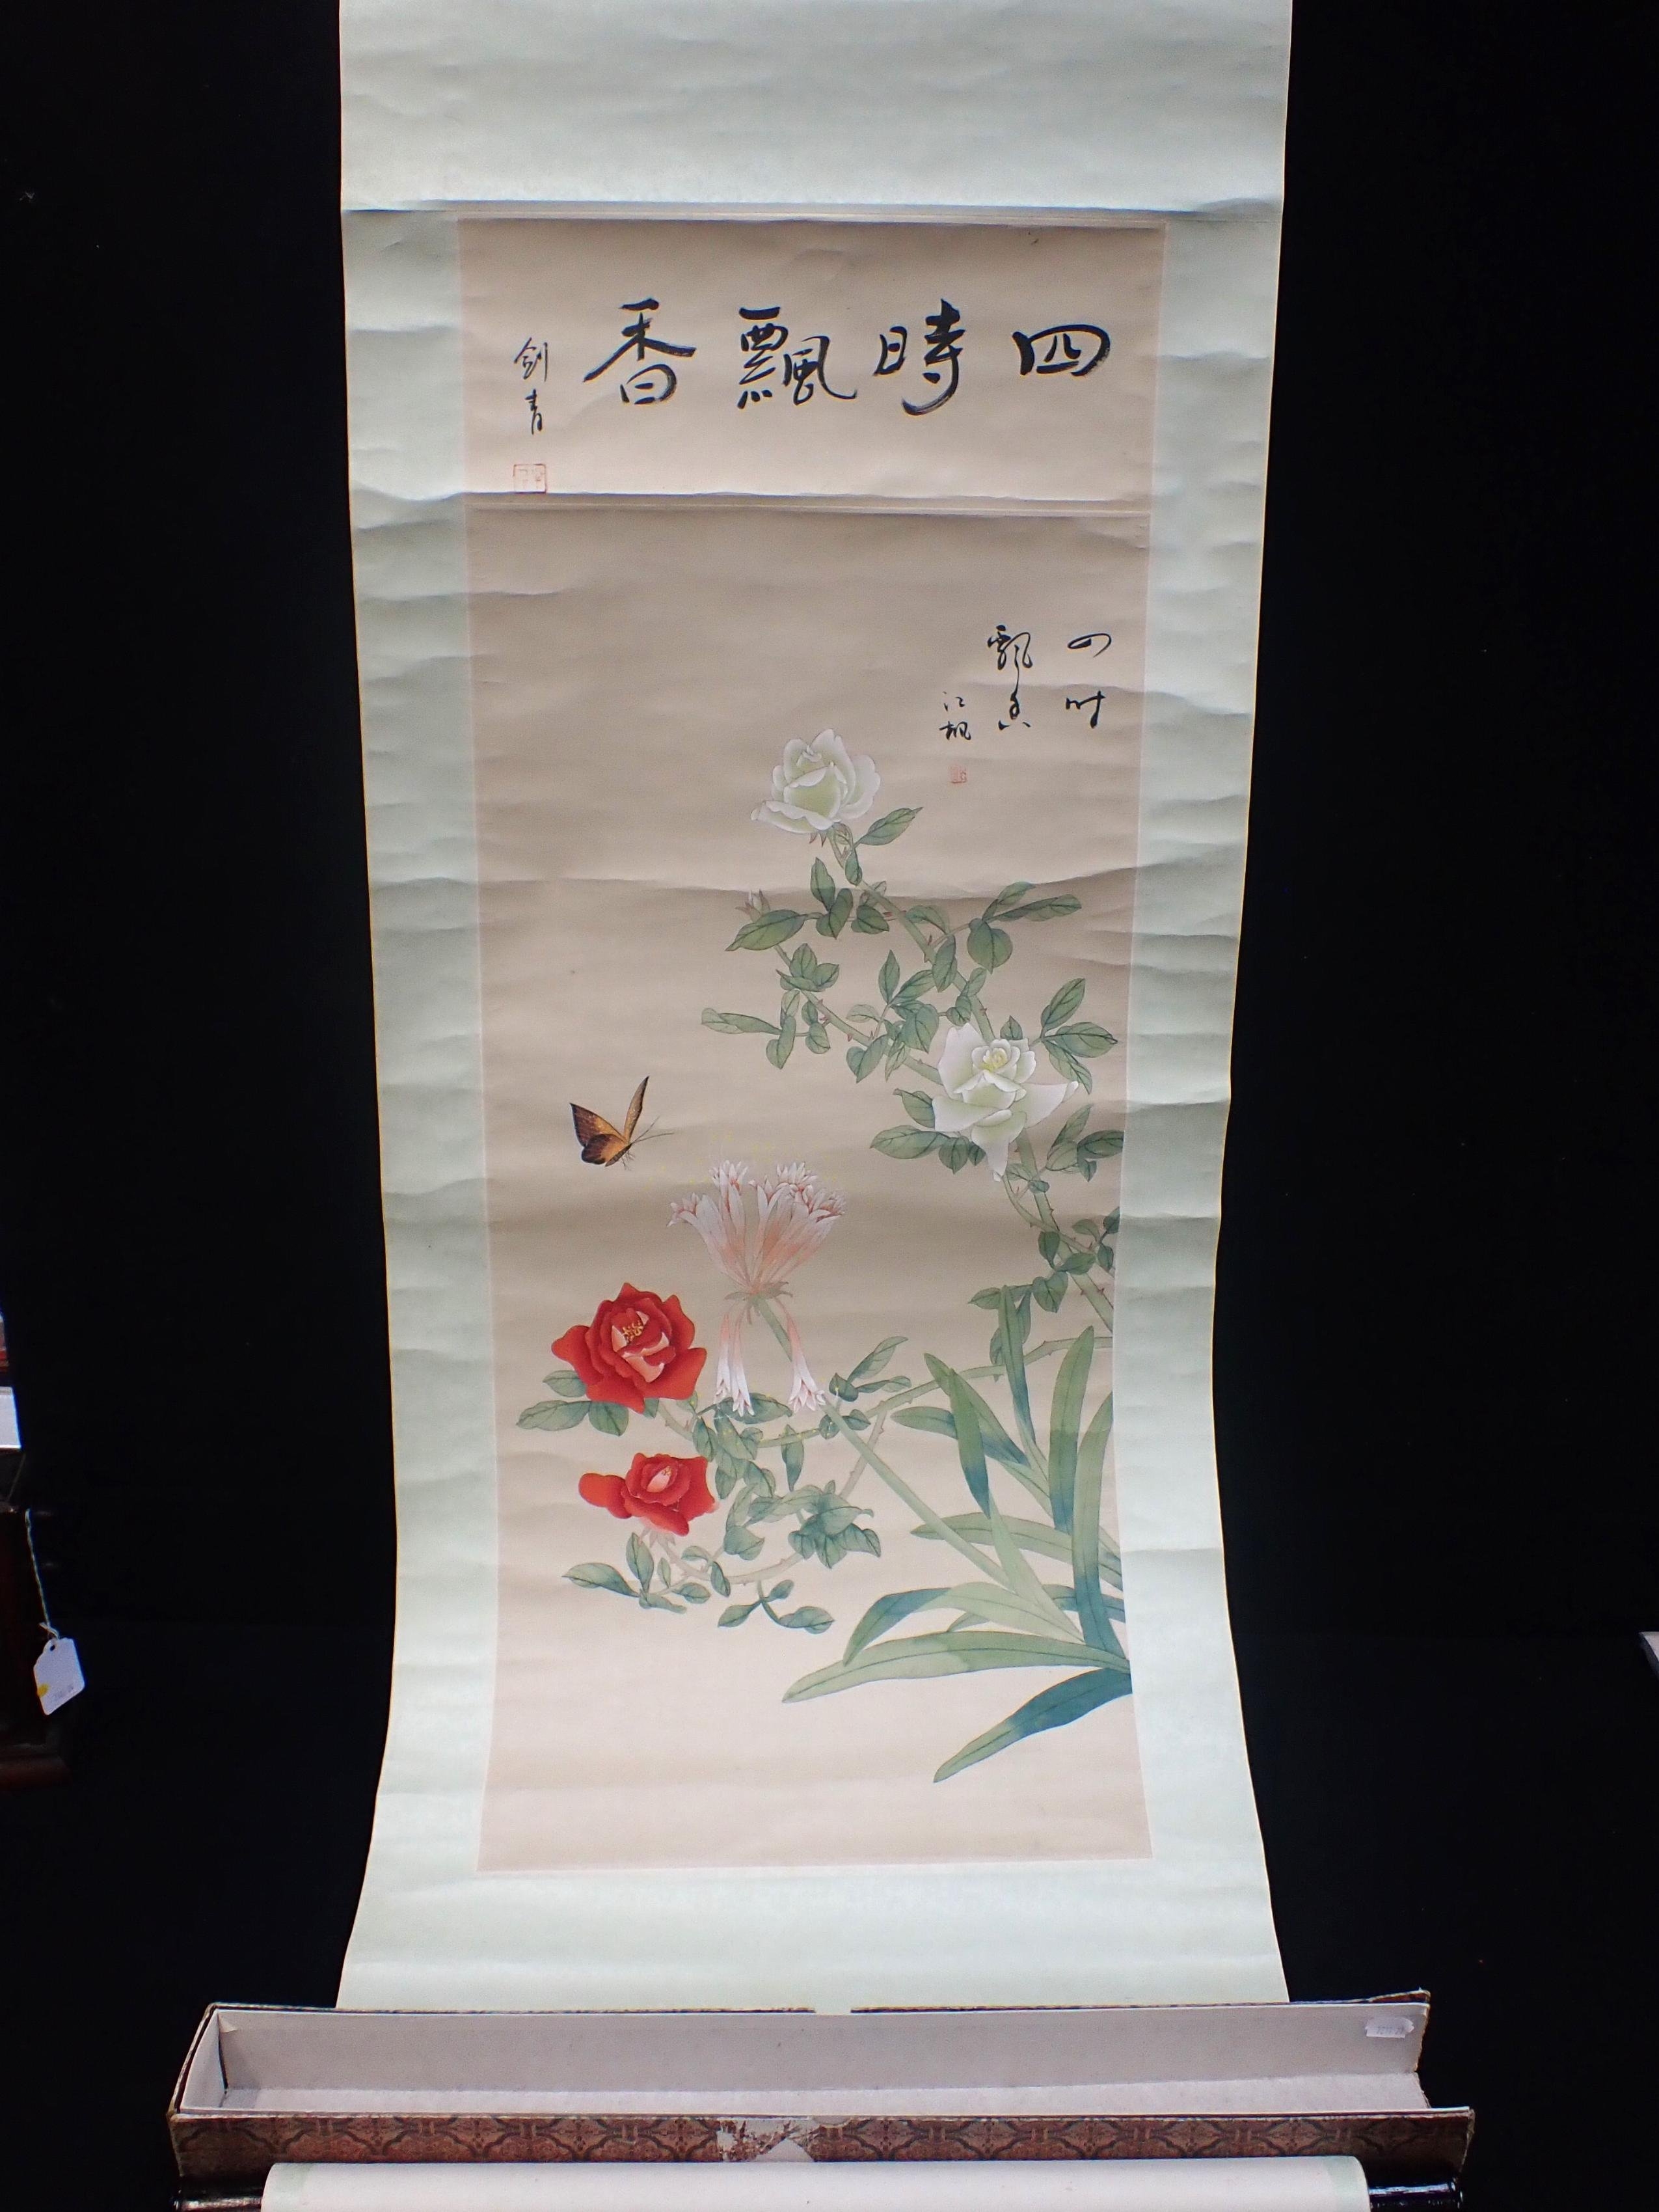 四時飄香
剑青
四时
飘香
江枫